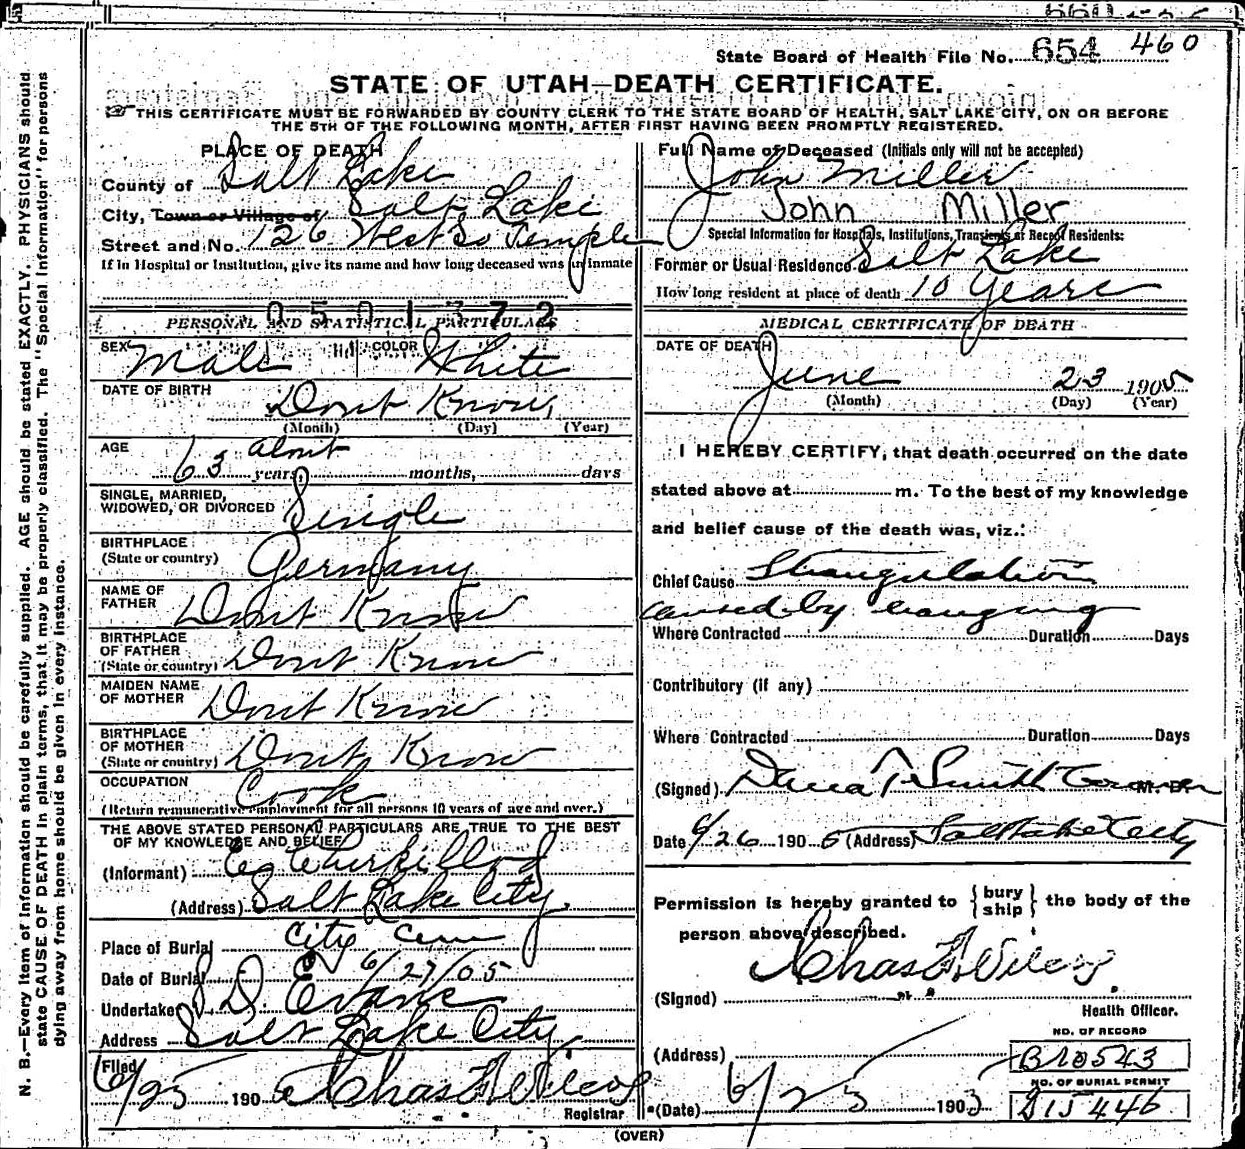 State Board of Health File No. 654 460
STATE OF UTAH—DEATH CERTIFICATE.
THIS CERTIFICATE MUST BE FORWARDED BY COUNTY CLERK TO THE STATE BOARD OF HEALTH, SALT LAKE CITY, ON OR BEFORE
THE 5TH OF THE FOLLOWING MONTH, AFTER FIRST HAVING BEEN PROMPTLY REGISTERED.
N. B.—Every item of information should be carefully supplied. AGE should be stated EXACTLY. PHYSICIANS should
state CAUSE OF DEATH in plain terms, that it may be properly classified. The "Special Information" for persons
dying away from home should be given in every instance.
PLACE OF DEATH
County of Salt Lake
City, Town or Village of Salt Lake
Street and No. 126 West So Temple
If in Hospital or Institution, give its name and how long deceased was an inmate
0501372
PERSONAL AND STATISTICAL PARTICULARS
SEX Male COLOR White
DATE OF BIRTH Dont Know
(Month) (Day) (Year)
AGE 63 about years, months, days
SINGLE, MARRIED,
WIDOWED, OR DIVORCED Single
BIRTHPLACE
(State or country) Germany
NAME OF
FATHER Dont Know
BIRTHPLACE
OF FATHER
(State or country) Dont Know
MAIDEN NAME
OF MOTHER Dont Know
BIRTHPLACE
OF MOTHER
(State or country) Dont Know
OCCUPATION Cook
(Return remunerative employment for all persons 10 years of age and over.)
THE ABOVE STATED PERSONAL PARTICULARS ARE TRUE TO THE BEST
OF MY KNOWLEDGE AND BELIEF
(Informant)
(Address) Salt Lake City.
Place of Burial City Cem
Date of Burial 6/27/05
Undertaker S D Evans
Address Salt Lake City
Filed
6/25 190 5 Chas F Wilcox
Registrar
Full Name of Deceased (Initials only will not be accepted)
John Miller
John Miller
Special Information for Hospitals, Institutions, Transients or Recent Residents:
Former or Usual Residence Salt Lake
How long resident at place of death 10 Years
MEDICAL CERTIFICATE OF DEATH
DATE OF DEATH
June 23 1905
(Month) (Day) (Year)
I HEREBY CERTIFY, that death occurred on the date
stated above at m. To the best of my knowledge
and belief cause of the death was, viz.:
Chief Cause Strangulation
caused by hanging
Where Contracted Duration Days
Contributory (if any)
Where Contracted Duration Days
(Signed) Dana T Smith Coroner M. D.
Date 6/26 190 5 (Address) Salt Lake City
Permission is hereby granted to {bury ship} the body of the
person above described.
Chas F Wilcox
(Signed)
Health Officer.
NO. OF RECORD
(Address) B10543
NO. OF BURIAL PERMIT
(Date) 6/25 1903 D15446
(OVER)